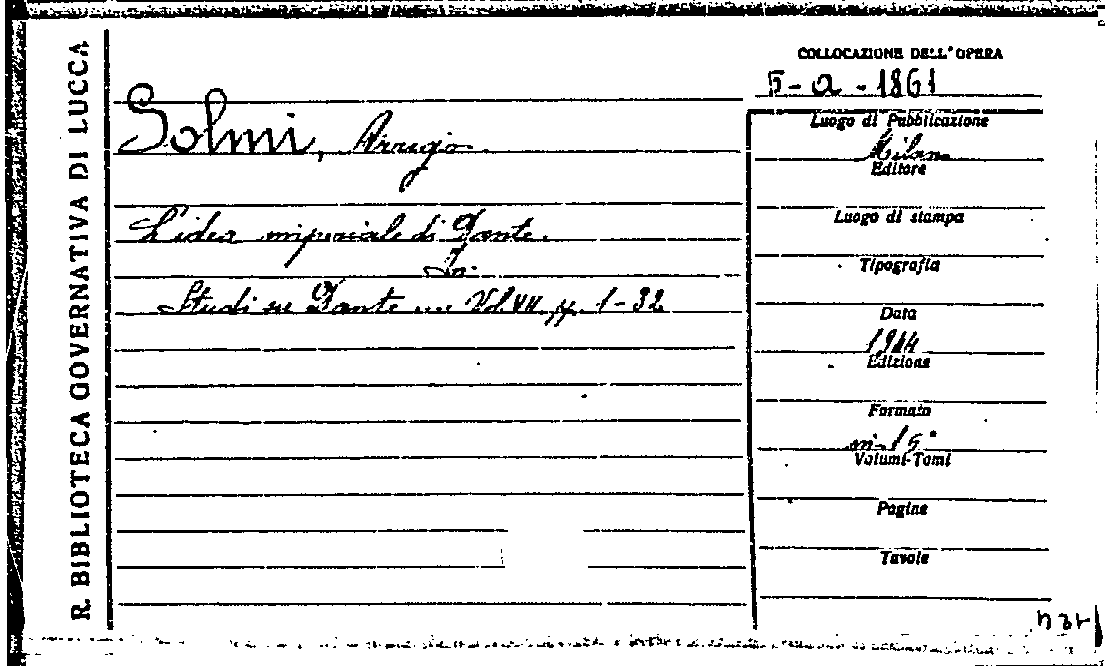 R. BIBLIOTECA GOVERNATIVA DI LUCCA
Solmi, Arrigo.
L'idea imperiale di Dante.
In:
Studi su Dante ... Vol. VII, pp. 1-32
COLLOCAZIONE DELL'OPERA
5-a-1861
Luogo di Pubblicazione
Milano
Editore
Luogo di stampa
Tipografia
Data
1944
Edizione
Formato
in-15°
Volumi-Tomi
Pagine
Tavole